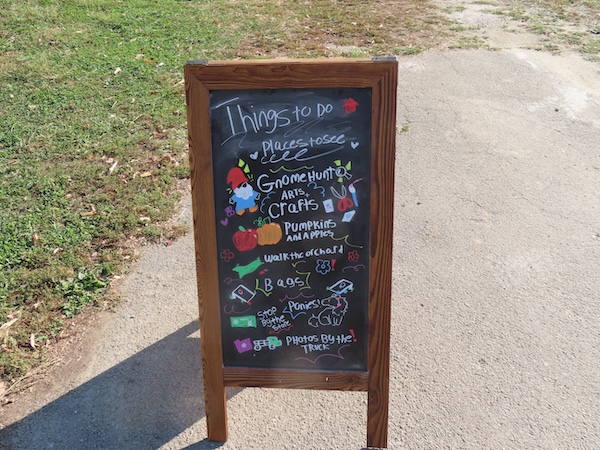 Things to Do
places to see
Gnome Hunt
ARTS +
Crafts
Pumpkins
and Apples
Walk the orchard
Bags
Ponies!
Stop
By the
Store
Photos By the!
Truck